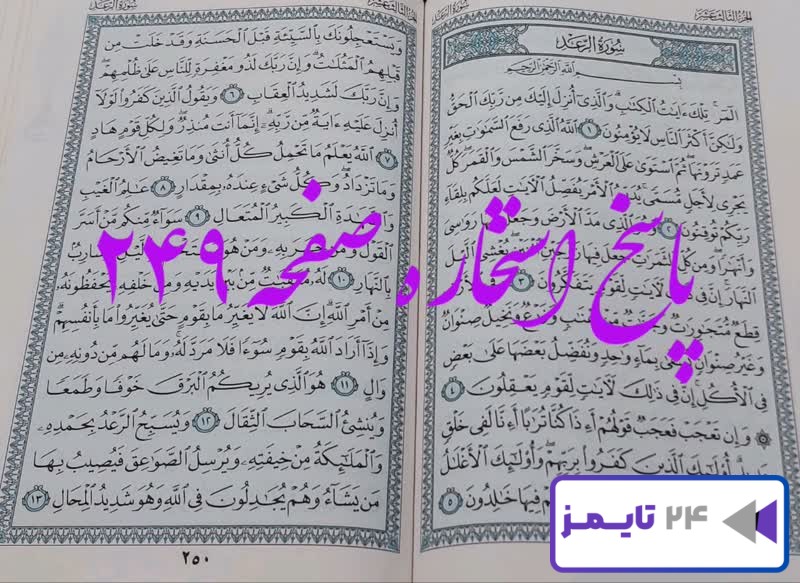 الجزء الثالث عشر
سورة الرعد
سُورَةُ الرَّعْدِ
بِسْمِ اللَّهِ الرَّحْمَنِ الرَّحِيمِ
الٓمٓر تِلْكَ ءَايَتُ الْكِتَبِ وَالَّذِي أُنزِلَ إِلَيْكَ مِن رَّبِّكَ الْحَقُّ
وَلَكِنَّ أَكْثَرَ النَّاسِ لَا يُؤْمِنُونَ ١ اللَّهُ الَّذِي رَفَعَ السَّمَوَتِ بِغَيْرِ
عَمَدٍ تَرَوْنَهَا ثُمَّ اسْتَوَى عَلَى الْعَرْشِ وَسَخَّرَ الشَّمْسَ وَالْقَمَرَ كُلٌّ
يَجْرِي لِأَجَلٍ مُّسَمًّى يُدَبِّرُ الْأَمْرَ يُفَصِّلُ الْآيَتِ لَعَلَّكُم بِلِقَاءِ
رَبِّكُمْ تُوقِنُونَ ٢ وَهُوَ الَّذِي مَدَّ الْأَرْضَ وَجَعَلَ فِيهَا رَوَسِيَ
وَأَنْهَرًا وَمِن كُلِّ الثَّمَرَتِ جَعَلَ فِيهَا زَوْجَيْنِ اثْنَيْنِ يُغْشِي الَّيْلَ
النَّهَارَ إِنَّ فِي ذَلِكَ لَآيَتٍ لِّقَوْمٍ يَتَفَكَّرُونَ ٣ وَفِي الْأَرْضِ
قِطَعٌ مُّتَجَوِرَتٌ وَجَنَّتٌ مِّنْ أَعْنَبٍ وَزَرْعٌ وَنَخِيلٌ صِنْوَانٌ
وَغَيْرُ صِنْوَانٍ يُسْقَى بِمَاءٍ وَحِدٍ وَنُفَضِّلُ بَعْضَهَا عَلَى بَعْضٍ
فِي الْأُكُلِ إِنَّ فِي ذَلِكَ لَآيَتٍ لِّقَوْمٍ يَعْقِلُونَ ٤
وَإِن تَعْجَبْ فَعَجَبٌ قَوْلُهُمْ أَءِذَا كُنَّا تُرَبًا أَءِنَّا لَفِي خَلْقٍ
جَدِيدٍ أُوْلَئِكَ الَّذِينَ كَفَرُوا بِرَبِّهِمْ وَأُوْلَئِكَ الْأَغْلَلُ
فِيهَا خَلِدُونَ ٥
سورة الرعد
الجزء الثالث عشر
وَيَسْتَعْجِلُونَكَ بِالسَّيِّئَةِ قَبْلَ الْحَسَنَةِ وَقَدْ خَلَتْ مِن
قَبْلِهِمُ الْمَثُلَتُ وَإِنَّ رَبَّكَ لَذُو مَغْفِرَةٍ لِّلنَّاسِ عَلَى ظُلْمِهِمْ
وَإِنَّ رَبَّكَ لَشَدِيدُ الْعِقَابِ ٦ وَيَقُولُ الَّذِينَ كَفَرُوا لَوْلَا
أُنزِلَ عَلَيْهِ ءَايَةٌ مِّن رَّبِّهِ إِنَّمَا أَنتَ مُنذِرٌ وَلِكُلِّ قَوْمٍ هَادٍ
٧ اللَّهُ يَعْلَمُ مَا تَحْمِلُ كُلُّ أُنثَى وَمَا تَغِيضُ الْأَرْحَامُ
وَمَا تَزْدَادُ وَكُلُّ شَيْءٍ عِندَهُ بِمِقْدَارٍ ٨ عَلِمُ الْغَيْبِ
وَالشَّهَدَةِ الْكَبِيرُ الْمُتَعَالِ ٩ سَوَاءٌ مِّنكُم مَّنْ أَسَرَّ
الْقَوْلَ وَمَن جَهَرَ بِهِ وَمَنْ هُوَ مُسْتَخْفٍ بِالَّيْلِ وَسَارِبٌ
بِالنَّهَارِ ١٠ لَهُ مُعَقِّبَتٌ مِّن بَيْنِ يَدَيْهِ وَمِنْ خَلْفِهِ يَحْفَظُونَهُ
مِنْ أَمْرِ اللَّهِ إِنَّ اللَّهَ لَا يُغَيِّرُ مَا بِقَوْمٍ حَتَّى يُغَيِّرُوا مَا بِأَنفُسِهِمْ
وَإِذَا أَرَادَ اللَّهُ بِقَوْمٍ سُوءًا فَلَا مَرَدَّ لَهُ وَمَا لَهُم مِّن دُونِهِ مِن
وَالٍ ١١ هُوَ الَّذِي يُرِيكُمُ الْبَرْقَ خَوْفًا وَطَمَعًا
وَيُنشِئُ السَّحَابَ الثِّقَالَ ١٢ وَيُسَبِّحُ الرَّعْدُ بِحَمْدِهِ
وَالْمَلَئِكَةُ مِنْ خِيفَتِهِ وَيُرْسِلُ الصَّوَعِقَ فَيُصِيبُ بِهَا
مَن يَشَاءُ وَهُمْ يُجَدِلُونَ فِي اللَّهِ وَهُوَ شَدِيدُ الْمِحَالِ ١٣
٢٥٠
پاسخ استخاره صفحه ۲۴۹
۲۴ تایمز